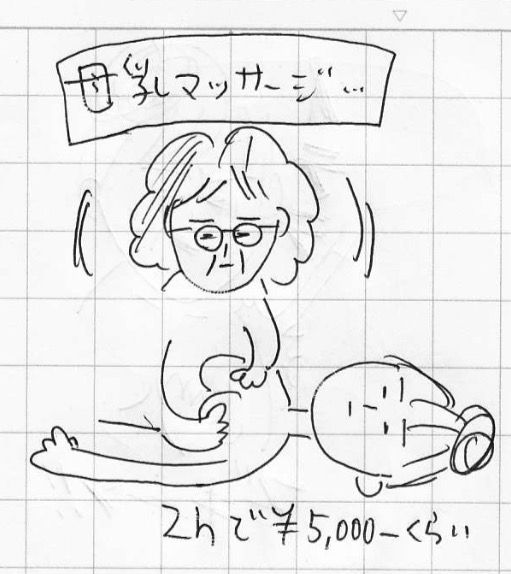 母乳マッサージ…
2hで¥5,000-くらい